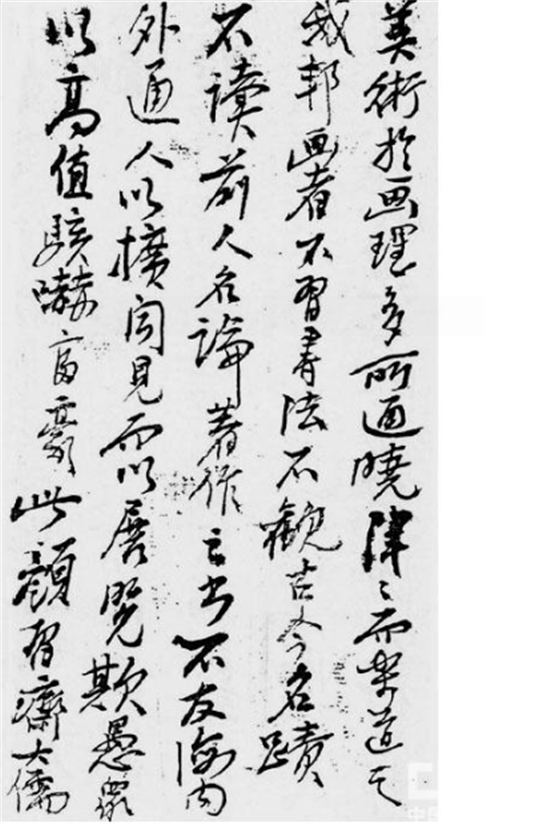 美術於画理多所通曉津々而樂道之
我邦画者不習書法不観古今名蹟
不讀前人名論著作之書不友海内
外通人以擴闻見而以展覽欺愚眾
以高值駭嚇富豪此顧習齋大儒